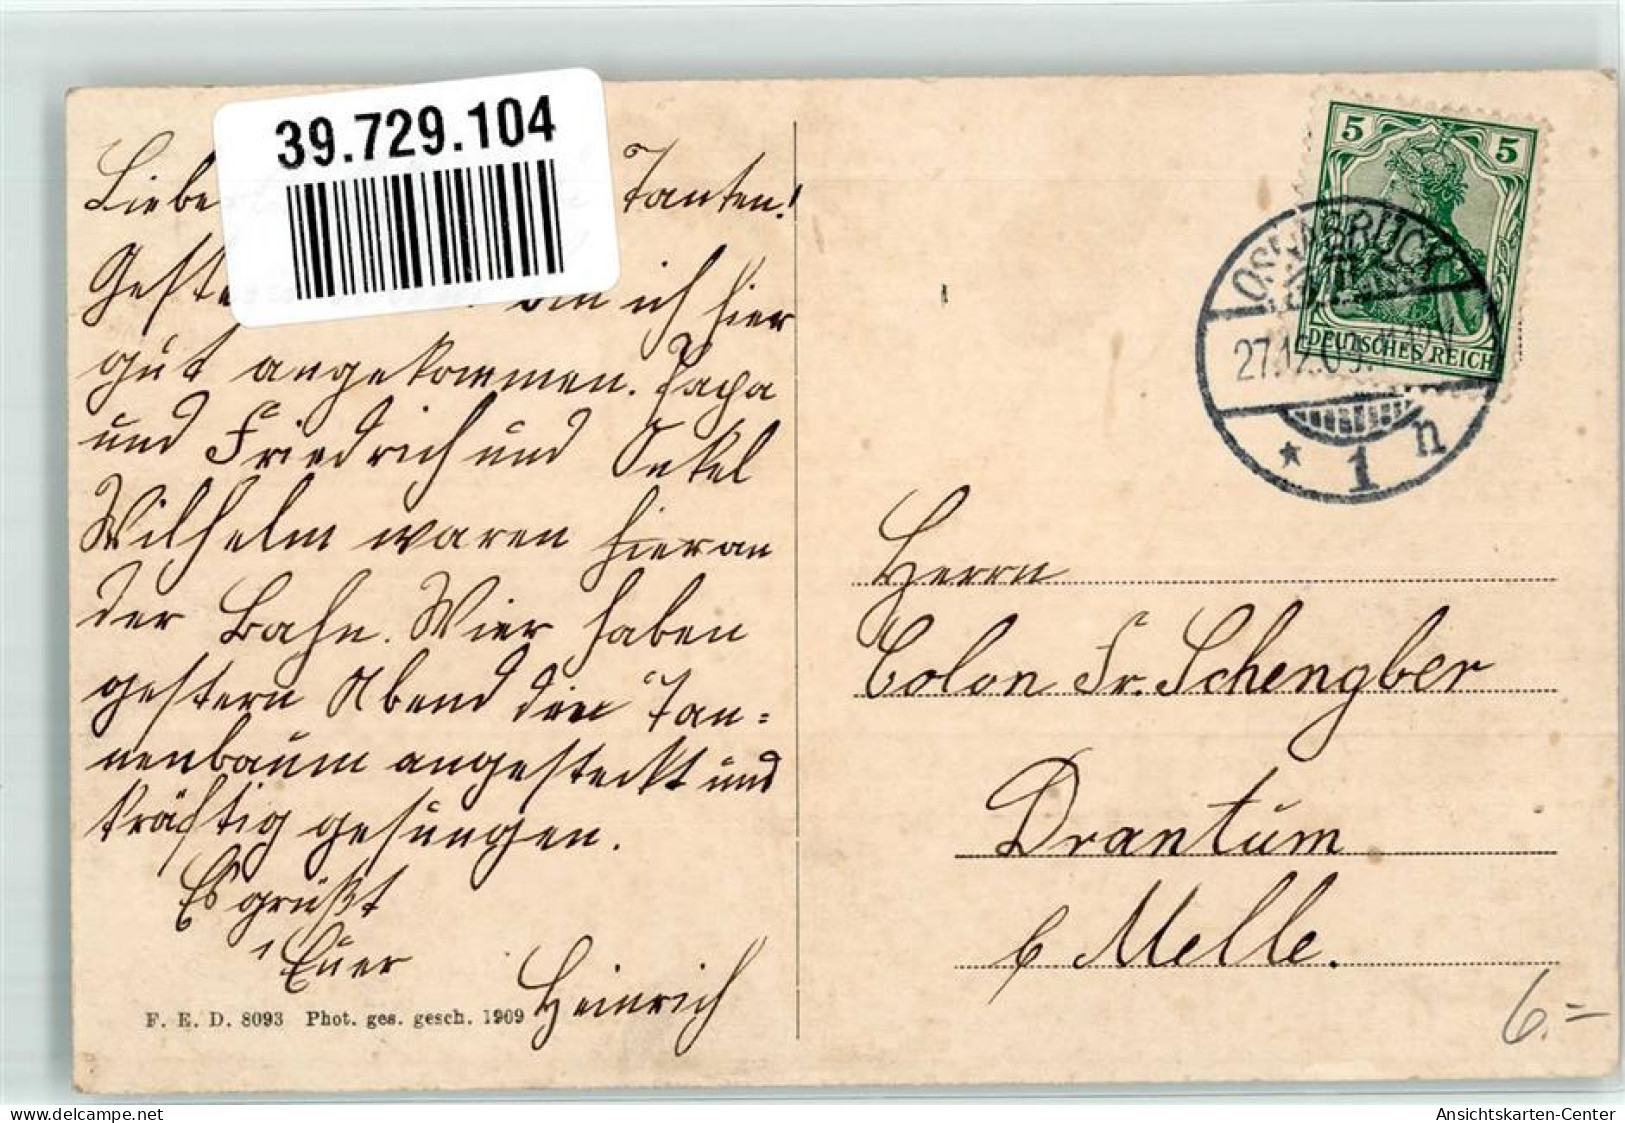 39.729.104
Liebe Tanten!
Gest bin ich hier
gut angekommen. Papa
und Friedrich und Onkel
Wilhelm waren hier an
der Bahn. Wier haben
gestern Abend den Tan=
nenbaum angesteckt und
kräftig gesungen.
Es grüßt
Euer
Heinrich
F. E. D. 8093 Phot. ges. gesch. 1909
5 5
DEUTSCHES REICH
OSNABRÜCK
27.12.09. 11-12N
* 1 n
Herrn
Colon Fr. Schengber
Drantum
b Melle.
6.=
Ansichtskarten-Center